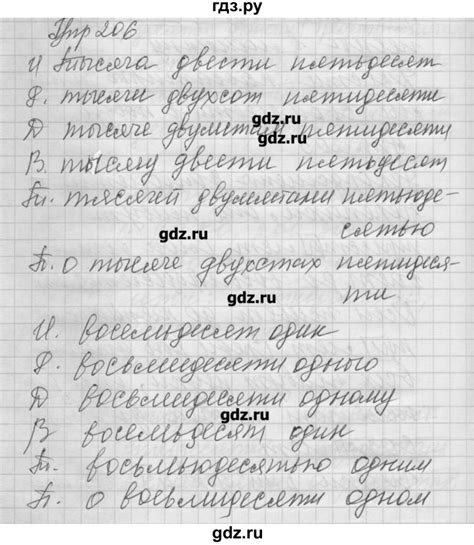 гдз.ру
Упр 206
И тысяча двести пятьдесят
Р. тысячи двухсот пятидесяти
gdz.ru
Д тысяче двумстам пятидесяти
gdz.ru
В. тысячу двести пятьдесят
Тп. тясячей двумястами пятьюде-
gdz.ru
сятью
П. о тысяче двухстах пятидеся-
gdz.ru
ти
И. восемьдесят один
Р. восьмидесяти одного
gdz.ru
Д восьмидесяти одному
gdz.ru
В восемьдесят один
Тп. восьмьюдесятью одним
gdz.ru
П. о восьмидесяти одном
gdz.ru